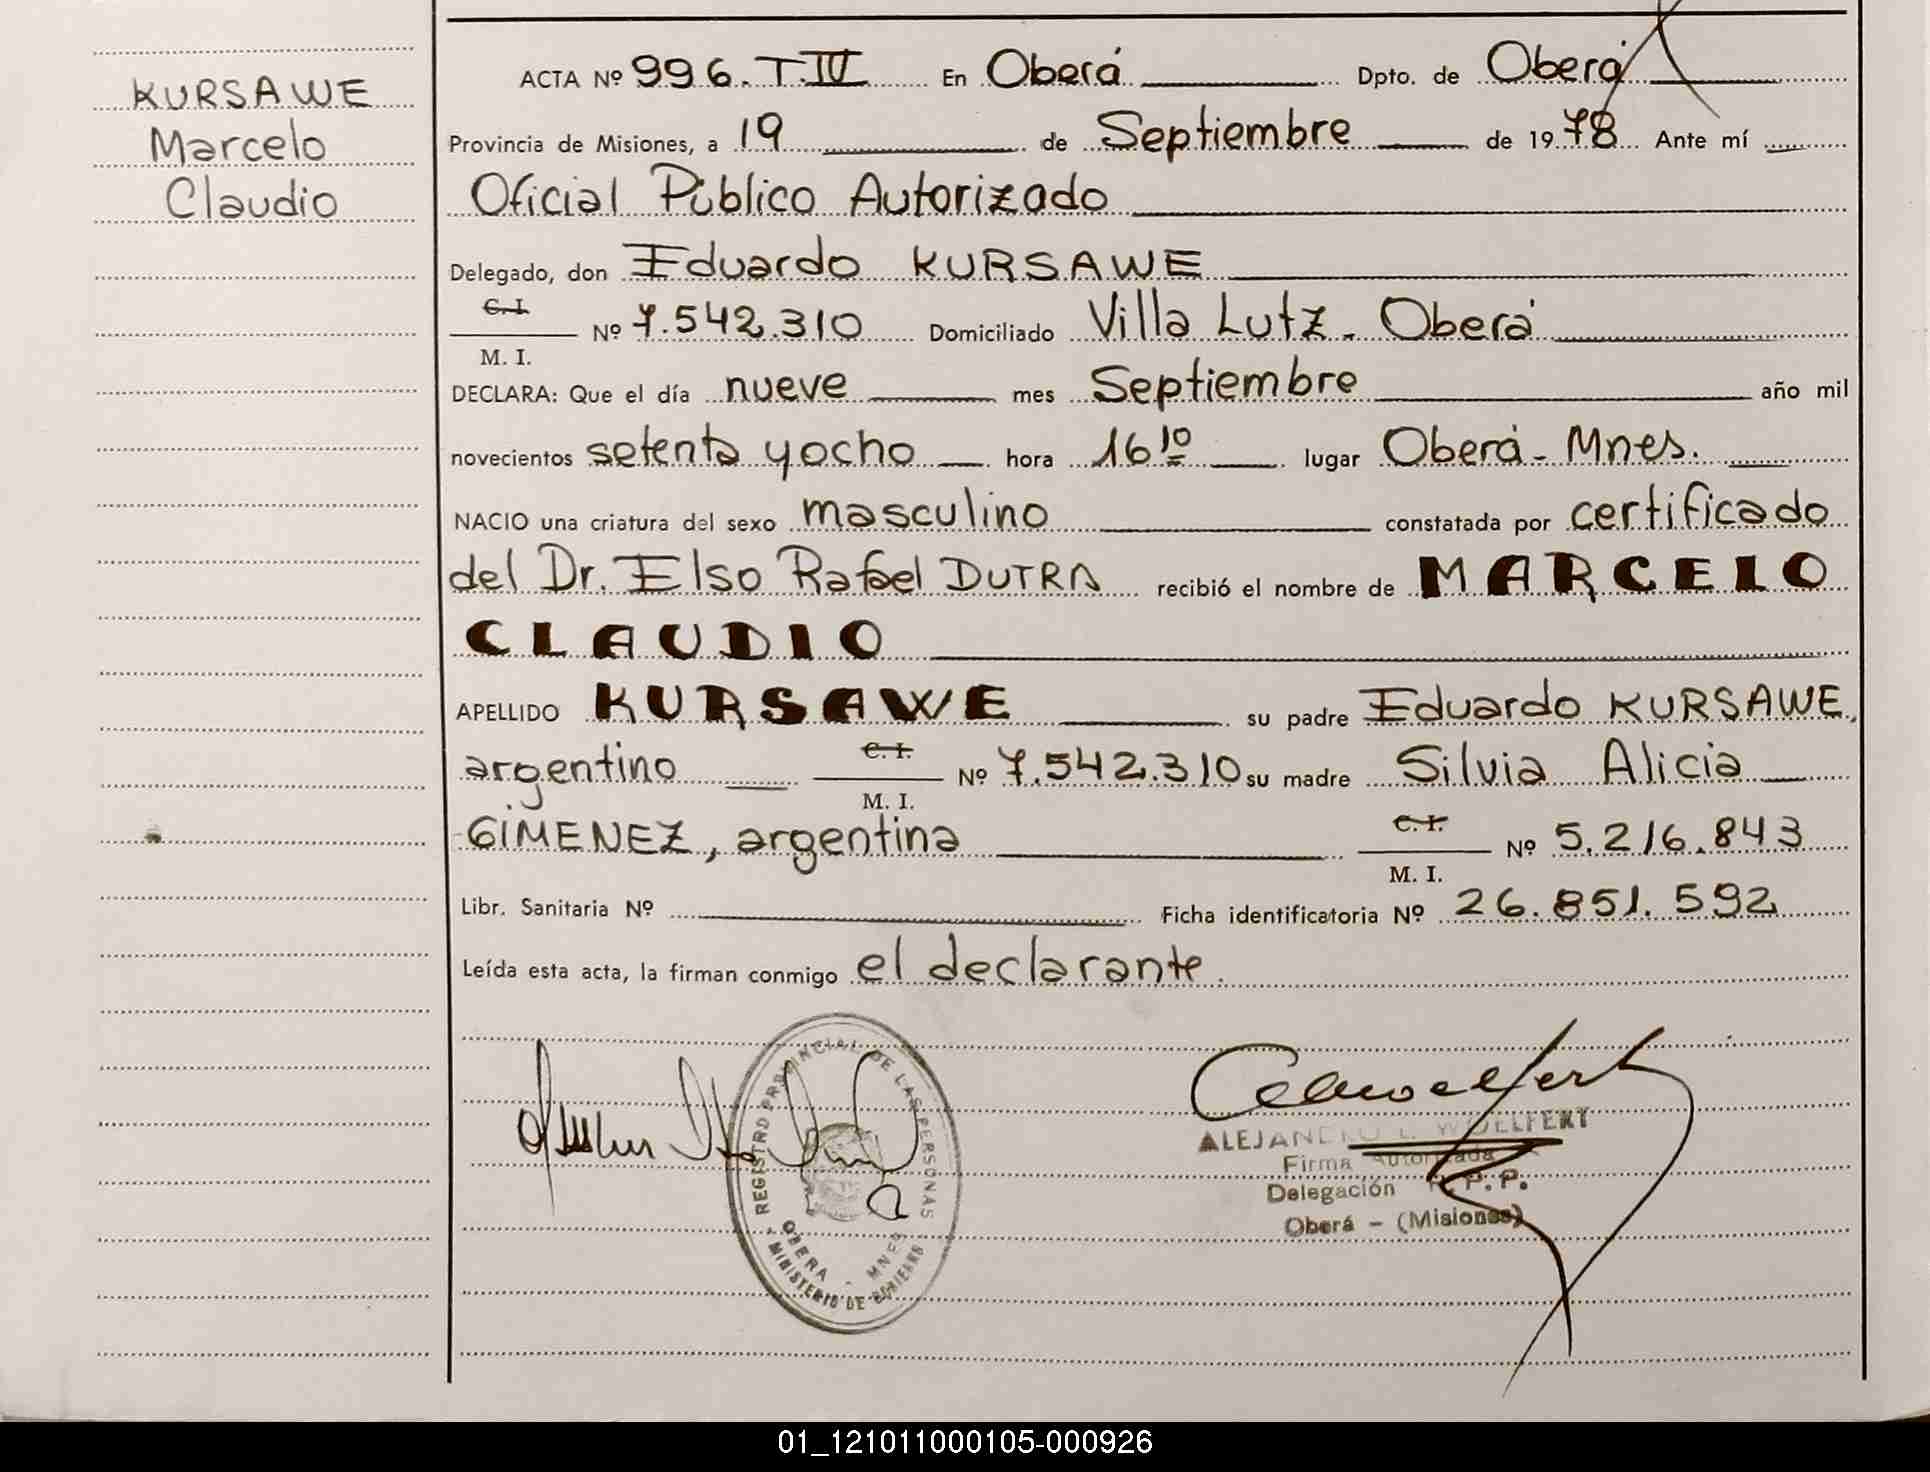 KURSAWE
Marcelo
Claudio
ACTA Nº 996. T.IV En Oberá Dpto. de Oberá
Provincia de Misiones, a 19 de Septiembre de 1978 Ante mí
Oficial Público Autorizado
Delegado, don Eduardo KURSAWE
C.I.
Nº 7.542.310 Domiciliado Villa Lutz - Oberá
M. I.
DECLARA: Que el día nueve mes Septiembre año mil
novecientos setenta y ocho hora 16 10 lugar Oberá - Mnes.
NACIO una criatura del sexo masculino constatada por certificado
del Dr. Elso Rafael DUTRA recibió el nombre de MARCELO
CLAUDIO
APELLIDO KURSAWE su padre Eduardo KURSAWE,
argentino C.I. Nº 7.542.310 su madre Silvia Alicia
M. I.
GIMENEZ, argentina C.I. Nº 5.216.843
M. I.
Libr. Sanitaria Nº Ficha identificatoria Nº 26.851.592
Leída esta acta, la firman conmigo el declarante.
REGISTRO PROVINCIAL DE LAS PERSONAS
OBERA - MNES
MINISTERIO DE GOBIERNO
ALEJANDRO L. WOELFERT
Firma Autorizada
Delegación R.P.P.
Oberá - (Misiones)
01_121011000105-000926